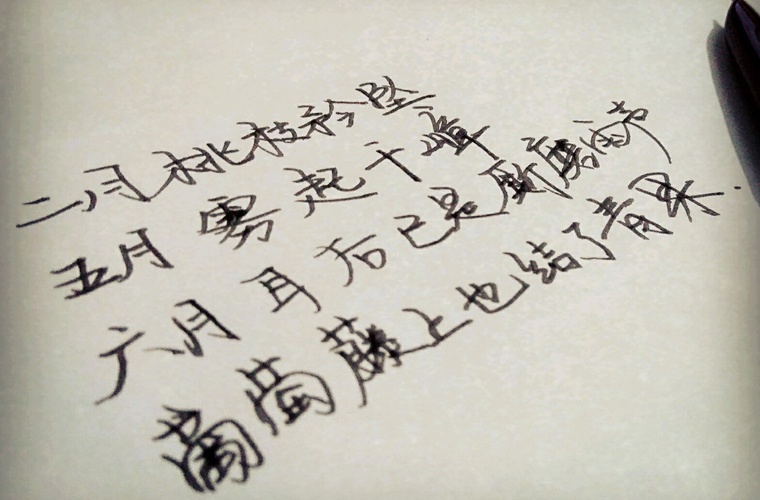 二月桃枝坠
五月雾起千
六月耳后已是厮磨
葡萄藤上也结了青果.